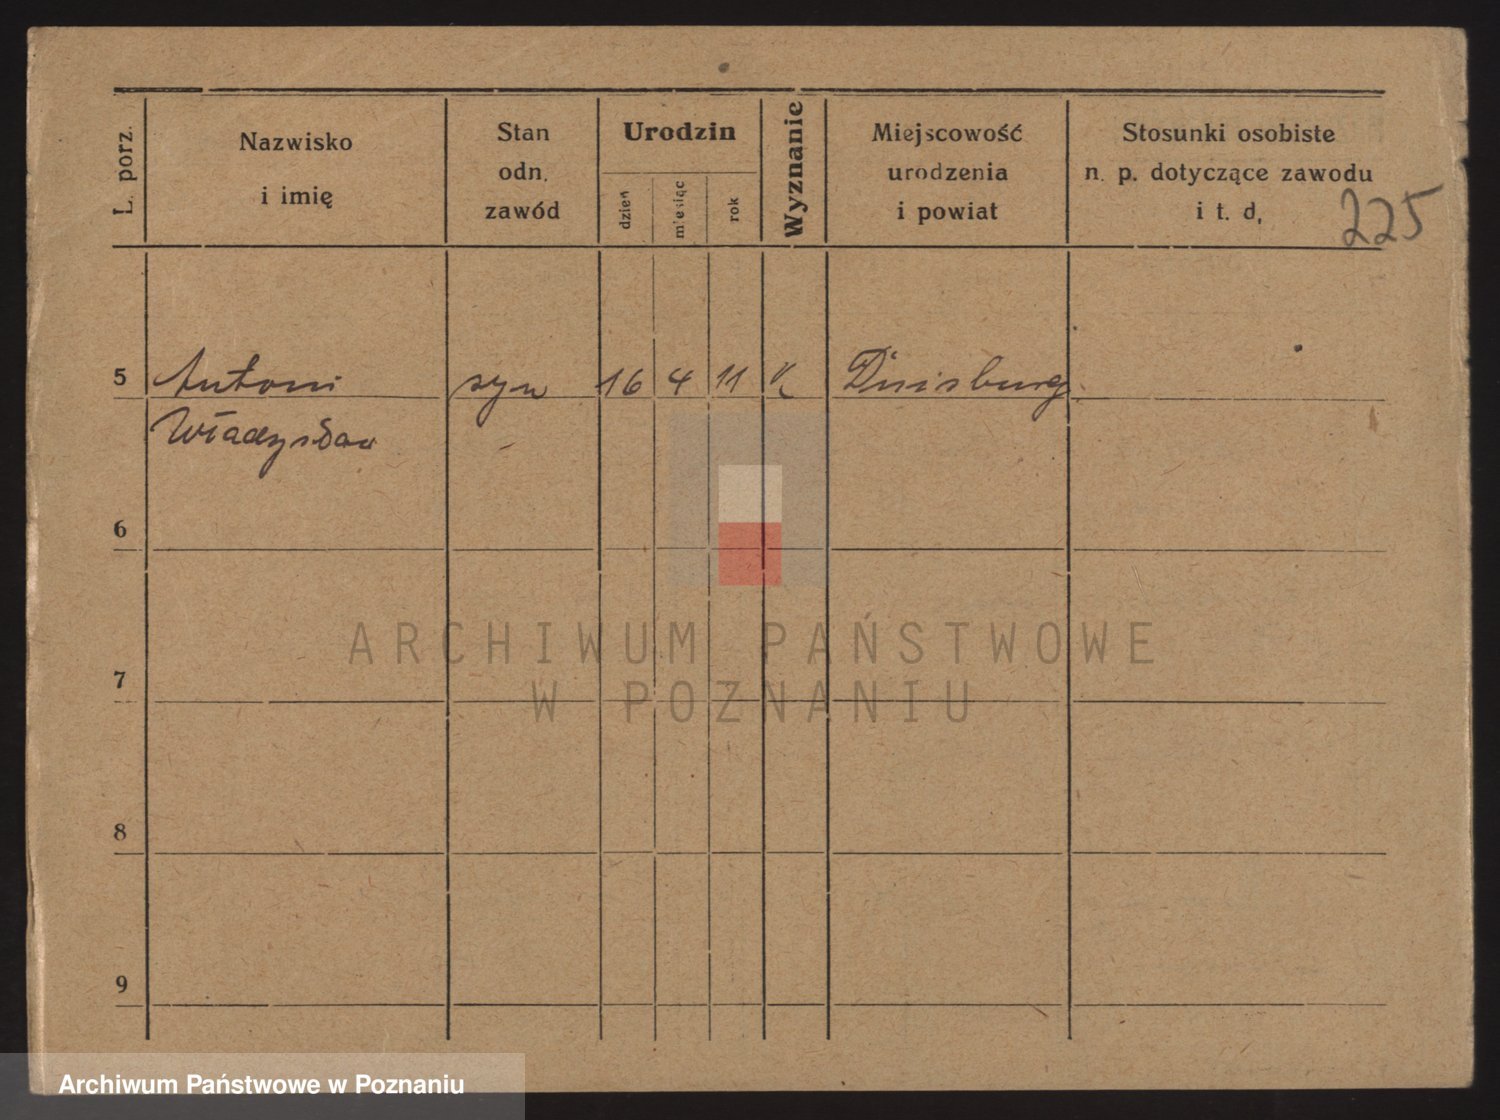 L. porz.
Nazwisko
i imię
Stan
odn.
zawód
Urodzin
dzień
miesiąc
rok
Wyznanie
Miejscowość
urodzenia
i powiat
Stosunki osobiste
n. p. dotyczące zawodu
i t. d.
225
5 Antoni syn 16 4 11 k Duisburg
Władysław
6
7
8
9
ARCHIWUM PAŃSTWOWE
W POZNANIU
Archiwum Państwowe w Poznaniu